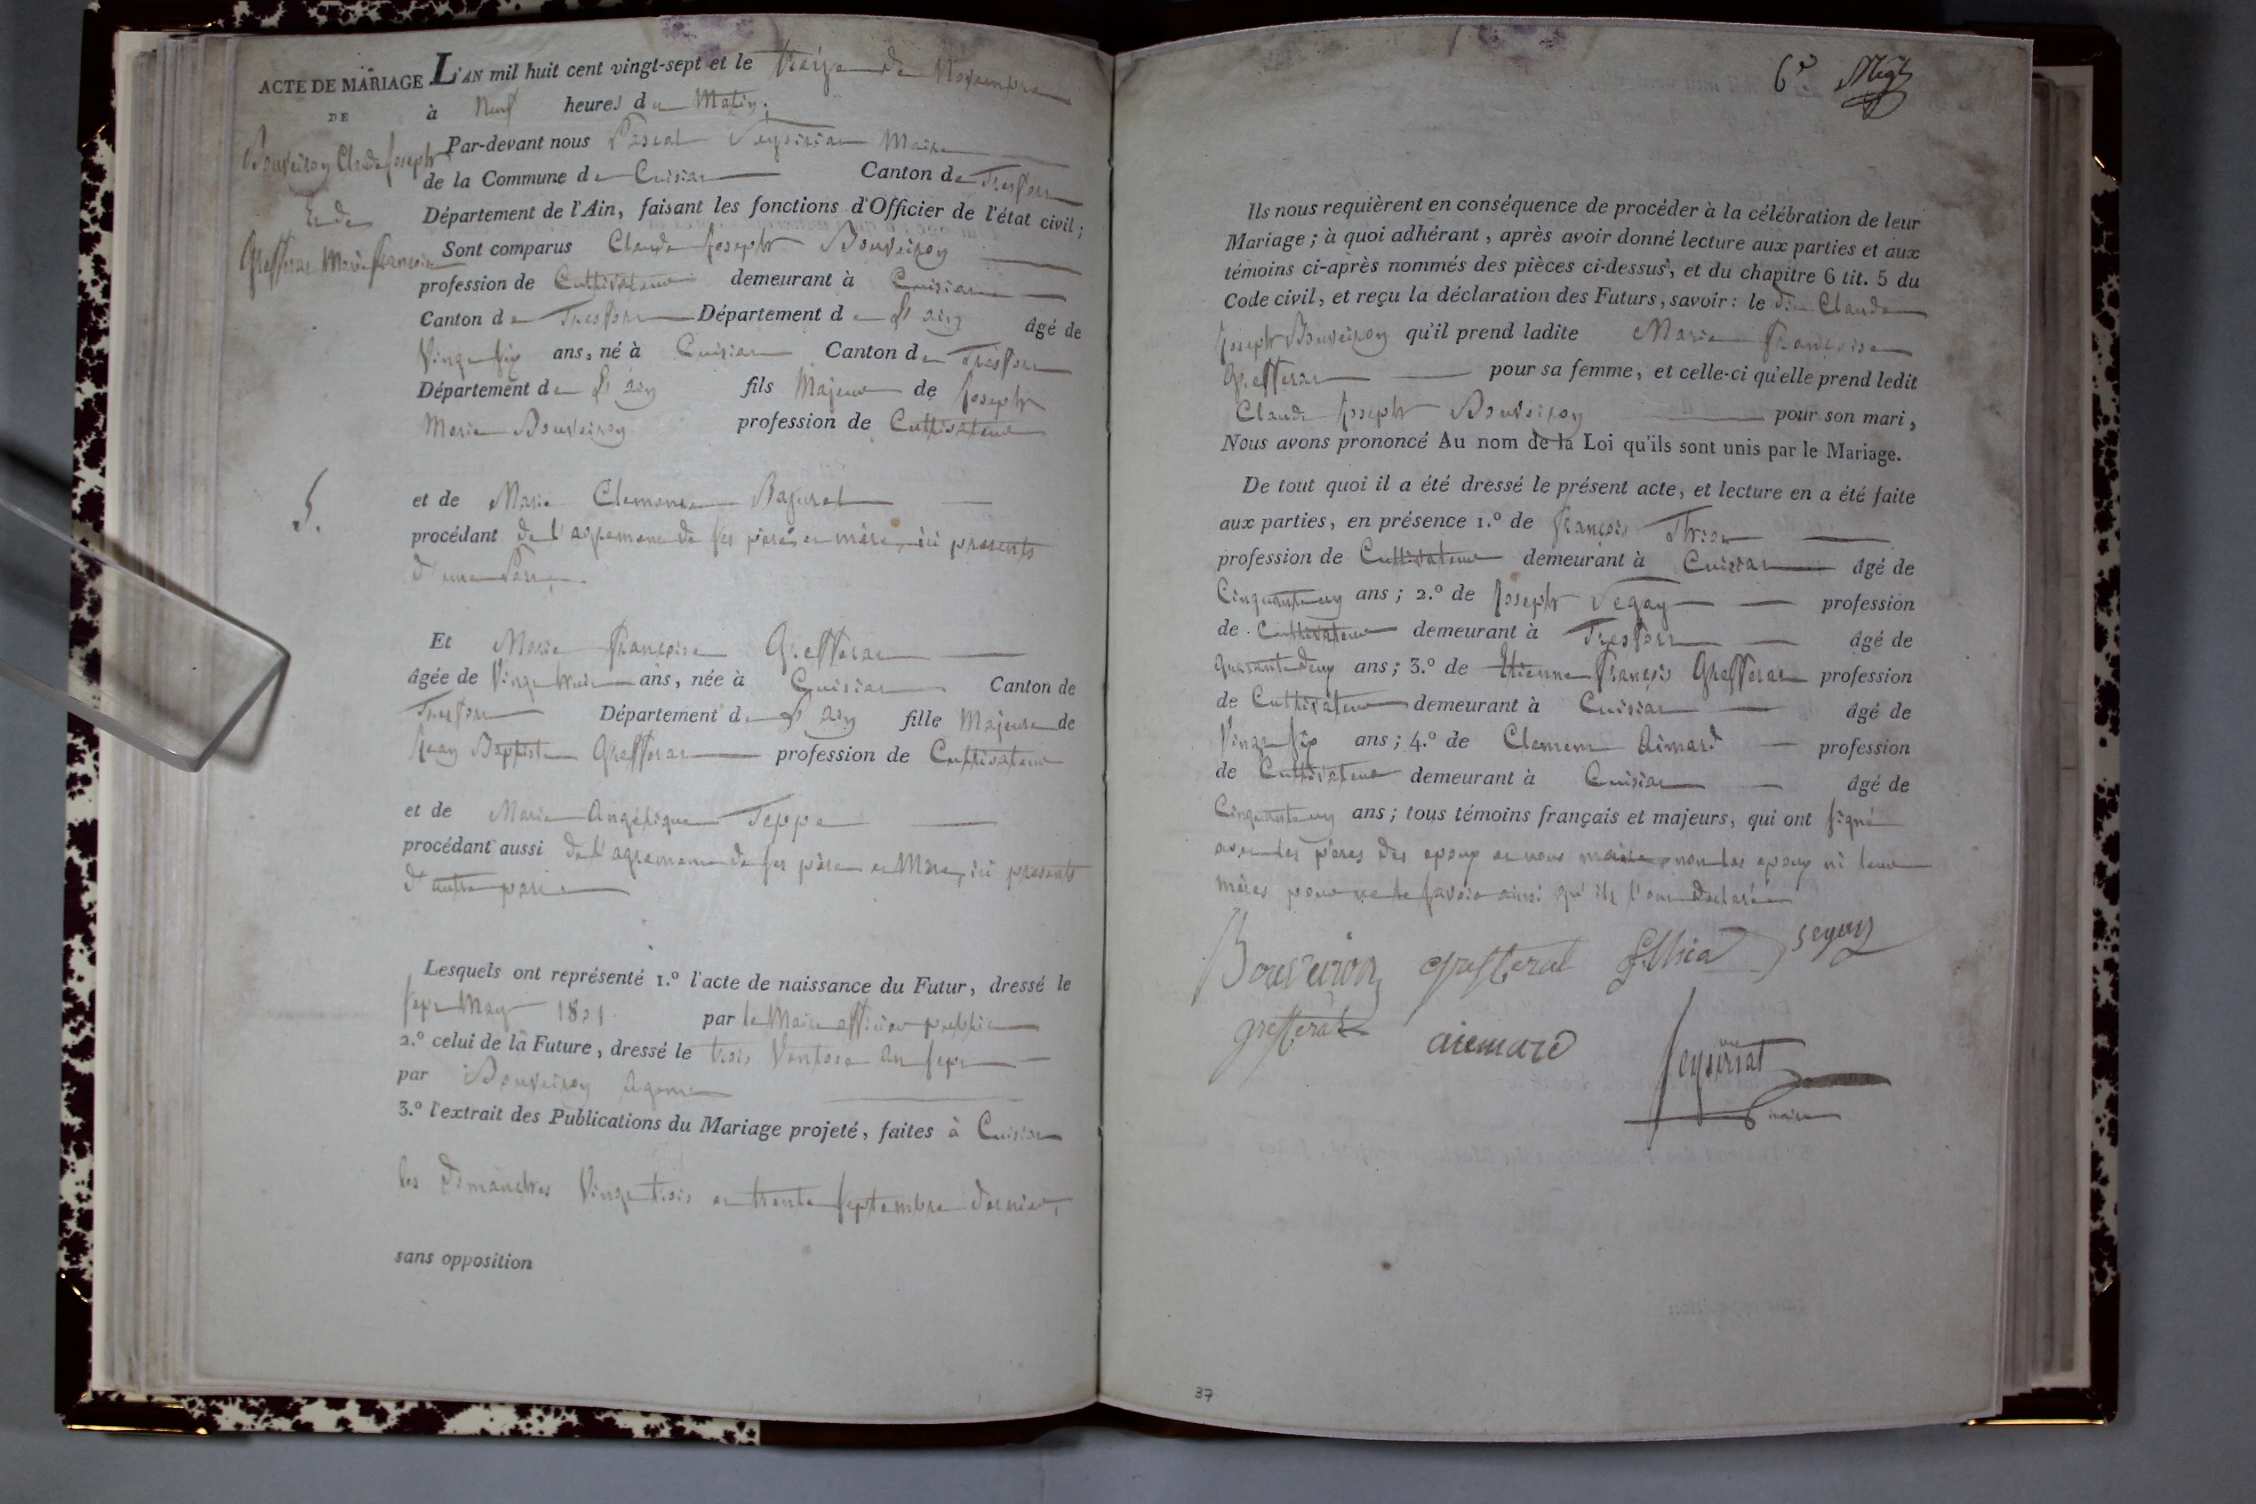 ACTE DE MARIAGE
DE
Bouveiron Claude Joseph
Et de
Grefferat Marie Françoise
5.
L'AN mil huit cent vingt-sept et le treize de Novembre
à Neuf heures du Matin;
Par-devant nous Pascal Teyssiriat Maire
de la Commune de Cuisiat Canton de Treffort
Département de l'Ain, faisant les fonctions d'Officier de l'état civil;
Sont comparus Claude Joseph Bouveiron
profession de Cultivateur demeurant à Cuisiat
Canton de Treffort Département de L'ain âgé de
Vingt six ans, né à Cuisiat Canton de Treffort
Département de L'ain fils Majeur de Joseph
Marie Bouveiron profession de Cultivateur
et de Marie Clemence
procédant de l'agrement de ses père et mère, ici presents
d'une Part
Et Marie Françoise Grefferat
âgée de Vingt huit ans, née à Cuisiat Canton de
Treffort Département de L'ain fille Majeure de
Jean Baptiste Grefferat profession de Cultivateur
et de Marie Angélique Teppe
procédant aussi de l'agrement de ses père et Mère, ici presents
d'autre part
Lesquels ont représenté 1.º l'acte de naissance du Futur, dressé le
sept May 1801 par le Maire officier public
2.º celui de la Future, dressé le trois Ventose an sept
par Bouveiron Agent
3.º l'extrait des Publications du Mariage projeté, faites à Cuisiat
les Dimanches Vingt trois et trente septembre dernier,
sans opposition
6e
Ils nous requièrent en conséquence de procéder à la célébration de leur
Mariage; à quoi adhérant, après avoir donné lecture aux parties et aux
témoins ci-après nommés des pièces ci-dessus, et du chapitre 6 tit. 5 du
Code civil, et reçu la déclaration des Futurs, savoir: le dit Claude
Joseph Bouveiron qu'il prend ladite Marie Françoise
Grefferat pour sa femme, et celle-ci qu'elle prend ledit
Claude Joseph Bouveiron pour son mari,
Nous avons prononcé Au nom de la Loi qu'ils sont unis par le Mariage.
De tout quoi il a été dressé le présent acte, et lecture en a été faite
aux parties, en présence 1.º de François
profession de Cultivateur demeurant à Cuisiat âgé de
Cinquante un ans; 2.º de Joseph Segay profession
de Cultivateur demeurant à Treffort âgé de
quarante deux ans; 3.º de Etienne François Grefferat profession
de Cultivateur demeurant à Cuisiat âgé de
Vingt six ans; 4.º de Clement Aimard profession
de Cultivateur demeurant à Cuisiat âgé de
Cinquante un ans; tous témoins français et majeurs, qui ont signé
avec les pères des epoux et nous maire, non les epoux ni leur
mères pour ne le savoir ainsi qu'ils l'ont déclaré
Bouveiron grefferat segay
grefferat aiemard
maire
37